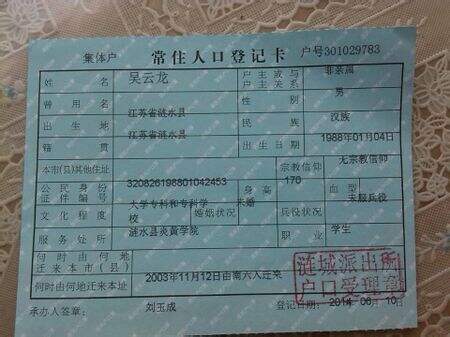 集体户 常住人口登记卡 户号301029783
姓名 吴云龙 户主或与户主关系 非亲属
曾用名 性别 男
出生地 江苏省涟水县 民族 汉族
籍贯 江苏省涟水县 出生日期 1988年01月04日
本市(县)其他住址 宗教信仰 无宗教信仰
公民身份证件编号 320826198801042453 身高 170 血型
文化程度 大学专科和专科学校 婚姻状况 未婚 兵役状况 未服兵役
服务处所 涟水县炎黄学院 职业 学生
何时由何地迁来本市(县)
何时由何地迁来本址 2003年11月12日由南六人迁来
承办人签章: 刘玉成 登记日期: 2014 06月10日
涟城派出所
户口受理章